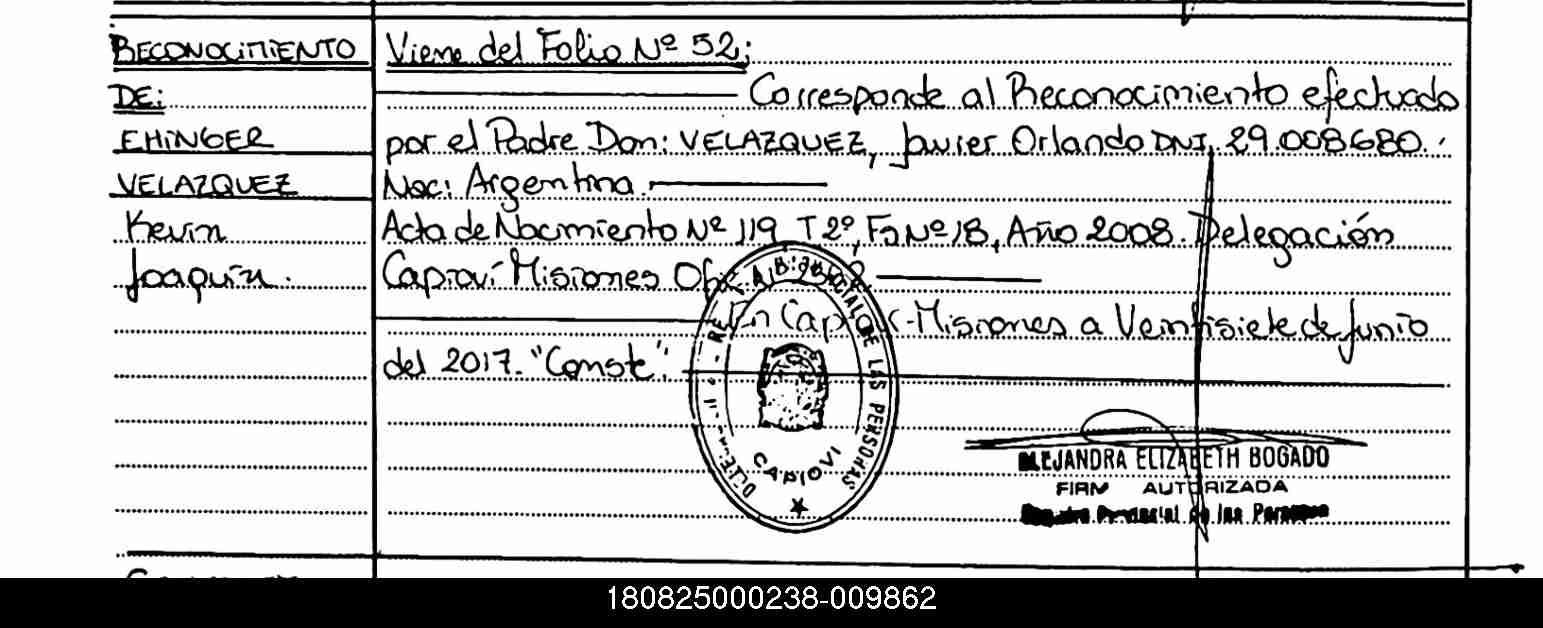 RECONOCIMIENTO
DE:
EHINGER
VELAZQUEZ
Kevin
Joaquín.
Viene del Folio Nº 52:
Corresponde al Reconocimiento efectuado
por el Padre Don: VELAZQUEZ, Javier Orlando DNI, 29.008680.
Nac: Argentina.
Acta de Nacimiento Nº 119 T 2º, Fº Nº 18, Año 2008. Delegación
Capioví Misiones
En Misiones a Veintisiete de Junio
del 2017. "Conste".
DE LAS PERSONAS
CAPIOVI
ALEJANDRA ELIZABETH BOGADO
FIRM AUTORIZADA
Registro Provincial de las Personas
180825000238-009862